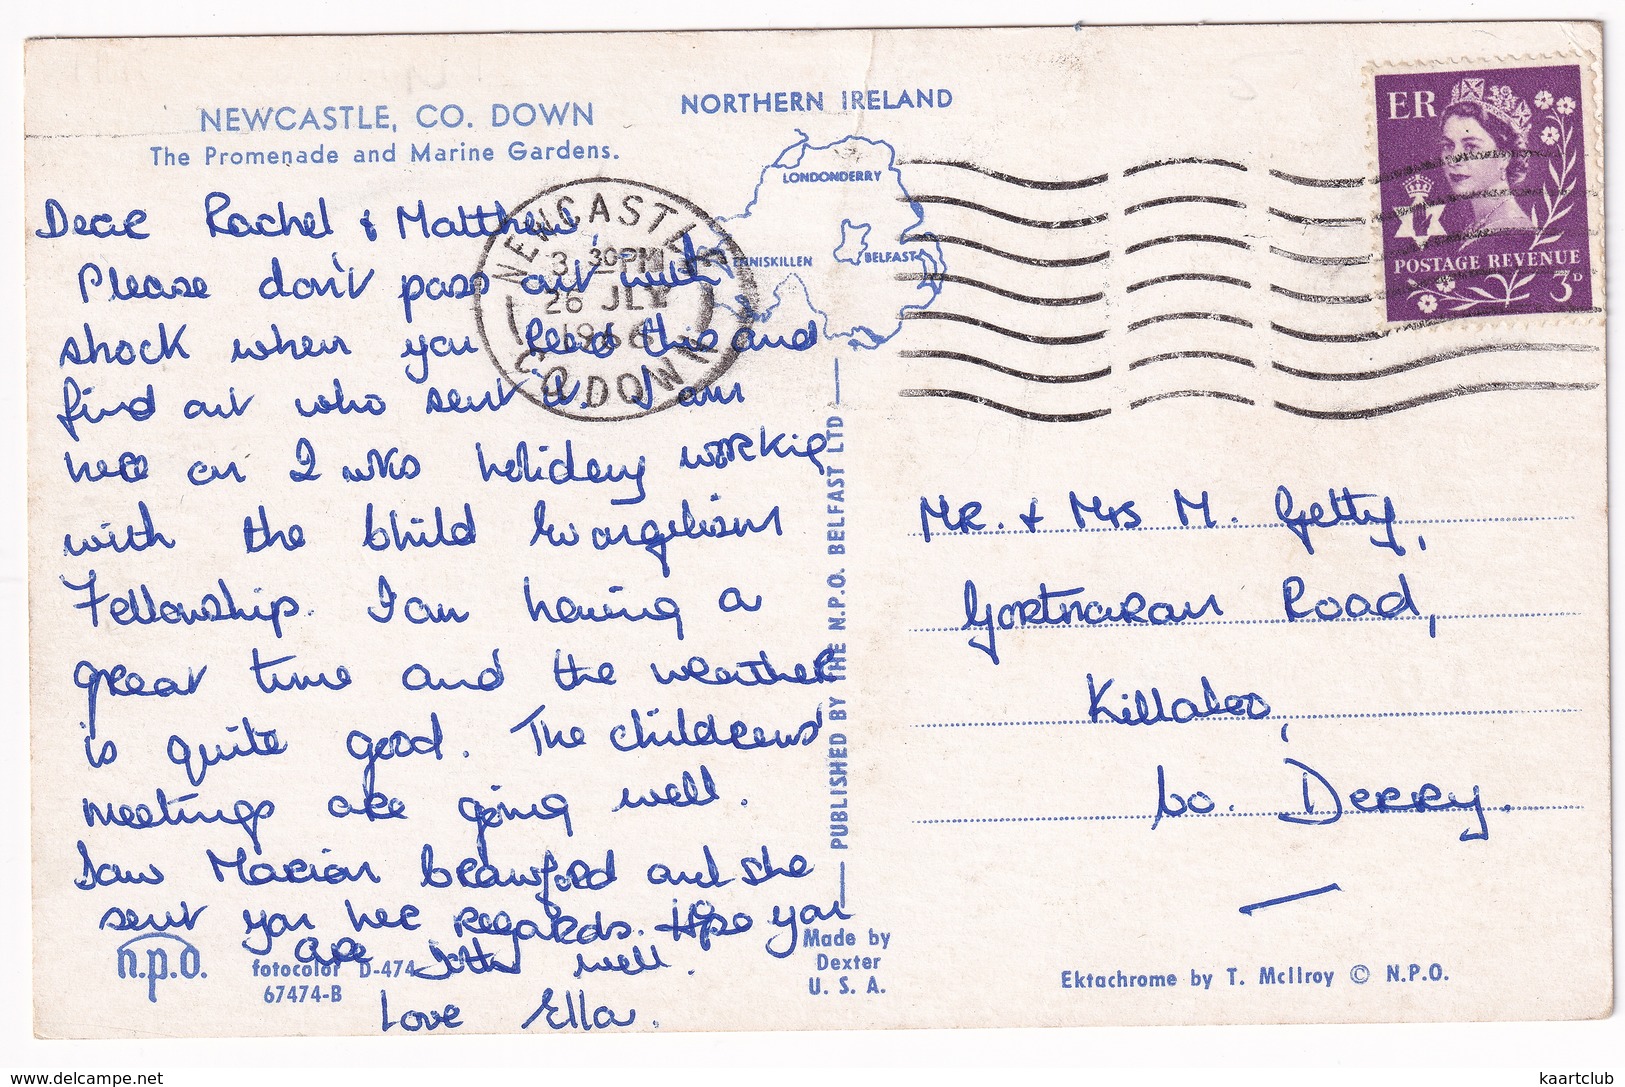 NEWCASTLE, CO. DOWN
The Promenade and Marine Gardens.
NORTHERN IRELAND
LONDONDERRY
ENNISKILLEN
BELFAST
NEWCASTLE
3 30 PM
26 JLY
CO DOWN
ER
POSTAGE REVENUE
3D
Dear Rachel & Matthew,
Please don't pass out with
shock when you read this and
find out who sent it. I am
here on 2 wks holiday working
with the Child Evangelism
Fellowship. I am having a
great time and the weather
is quite good. The childrens'
meetings are going well.
Saw Marian Crawford and she
sent you her regards. Hope you
are both well.
Love Ella.
Mr. & Mrs M. Getty,
Gortnaran Road,
Killaloo,
Co. Derry.
PUBLISHED BY THE N.P.O. BELFAST LTD
n.p.o.
fotocolor D-474
67474-B
Made by
Dexter
U. S. A.
Ektachrome by T. McIlroy © N.P.O.
www.delcampe.net
kaartclub